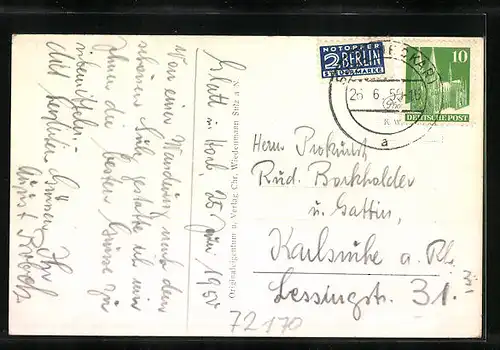 Glatt in Hoh., 25 Juni 1950
Von einer Wanderung nach dem
schönen Sulz gestatte ich mir
Ihnen die besten Grüsse zu
übermitteln.
Mit herzlichen Grüssen Ihr
August
Originaleigentum u. Verlag Chr. Wiedenmann Sulz a N.
NOTOPFER
2 BERLIN
STEUERMARKE
10
DEUTSCHE POST
26. 6. 50-16
a
Herrn Prokurist
Rud. Borkholder
u. Gattin,
Karlsruhe a. Rh.
Lessingstr. 31.
72170